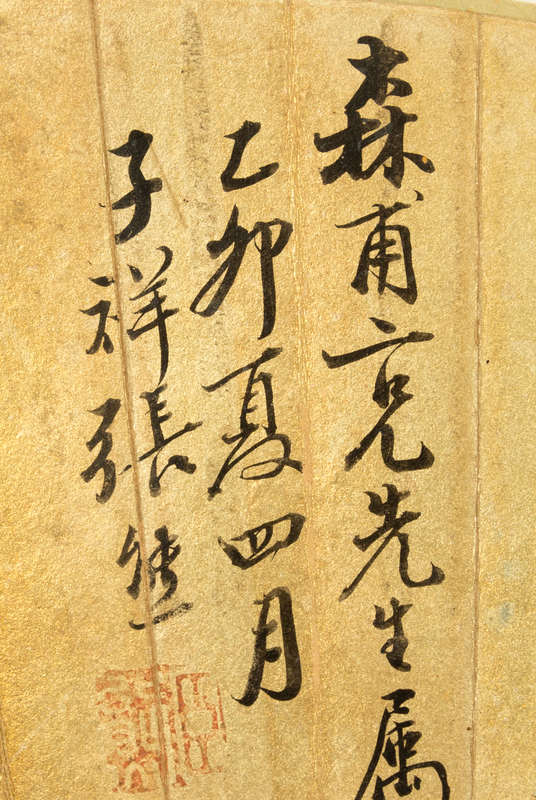 森甫仁兄先生属
乙卯夏四月
子祥張熊